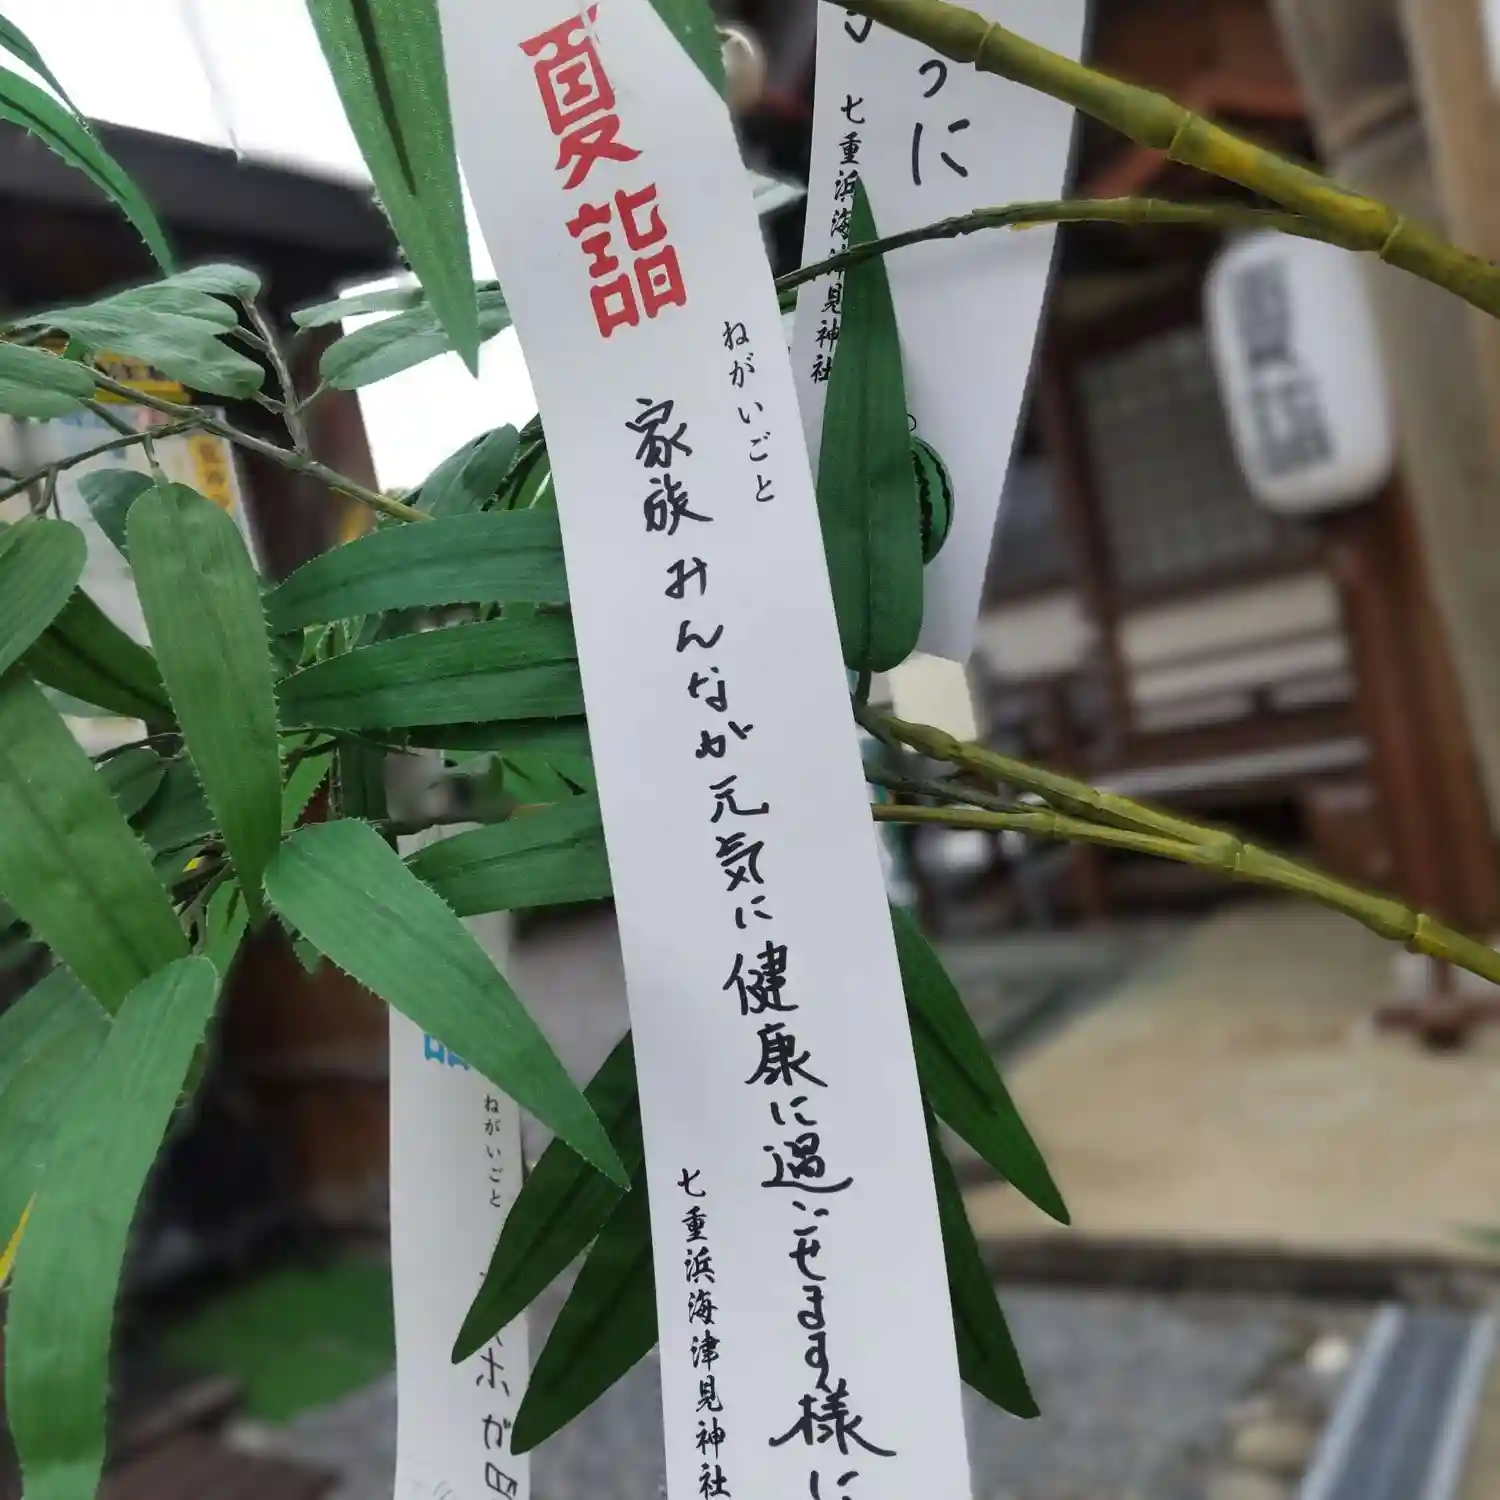 夏詣
ねがいごと
家族みんなが元気に健康に過ごせます様に
七重浜海津見神社
うに
七重浜海津見神社
詣
ねがいごと
夏詣